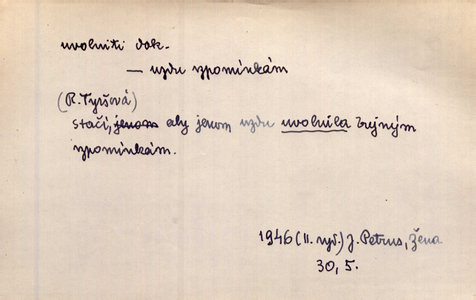 uvolniti dok.
— uzdu vzpomínkám
(R. Tyršová)
stačí, jenom aby jenom uzdu uvolnila bujným
vzpomínkám.
1946 (II. vyd.) J. Petrus, Žena
30, 5.